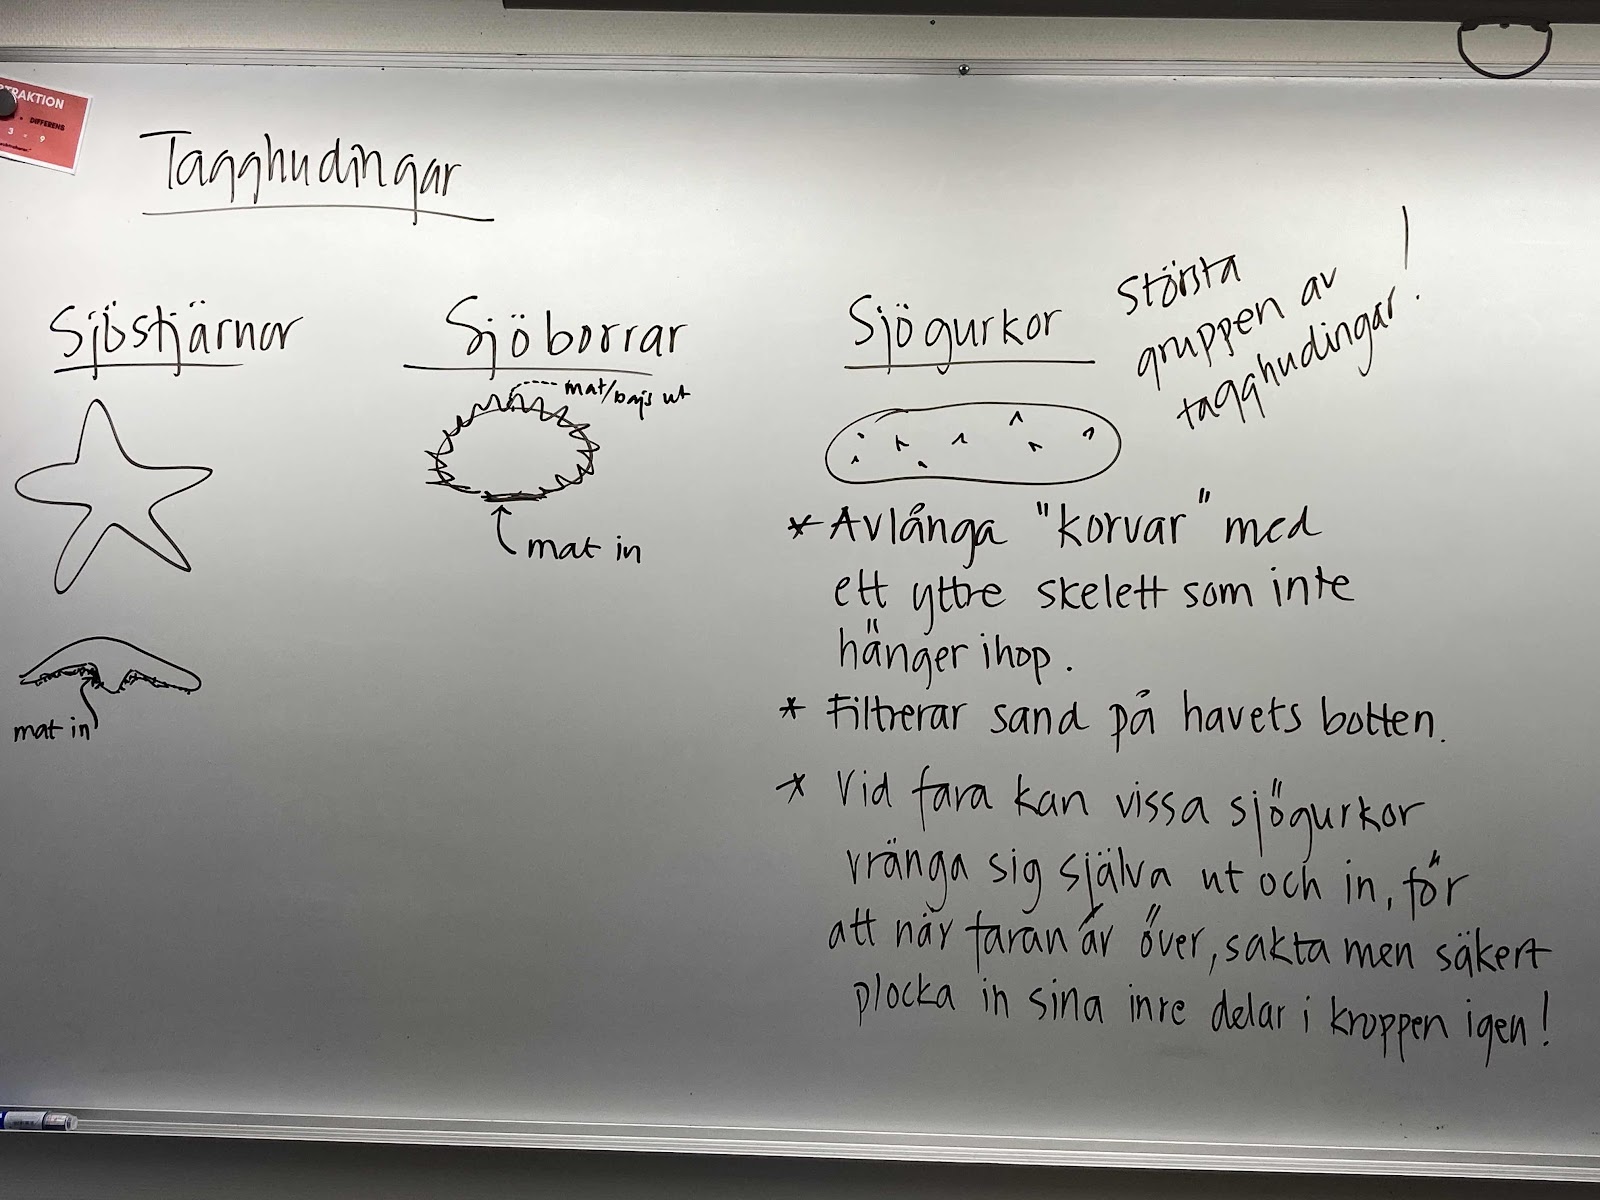 TRAKTION
= DIFFERENS
3 = 9
Tagghudingar
Sjöstjärnor
mat in
Sjöborrar
mat/bajs ut
mat in
Sjögurkor
Största
gruppen av
tagghudingar!
* Avlånga "korvar" med
ett yttre skelett som inte
hänger ihop.
* Filtrerar sand på havets botten.
* Vid fara kan vissa sjögurkor
vränga sig själva ut och in, för
att när faran är över, sakta men säkert
plocka in sina inre delar i kroppen igen!